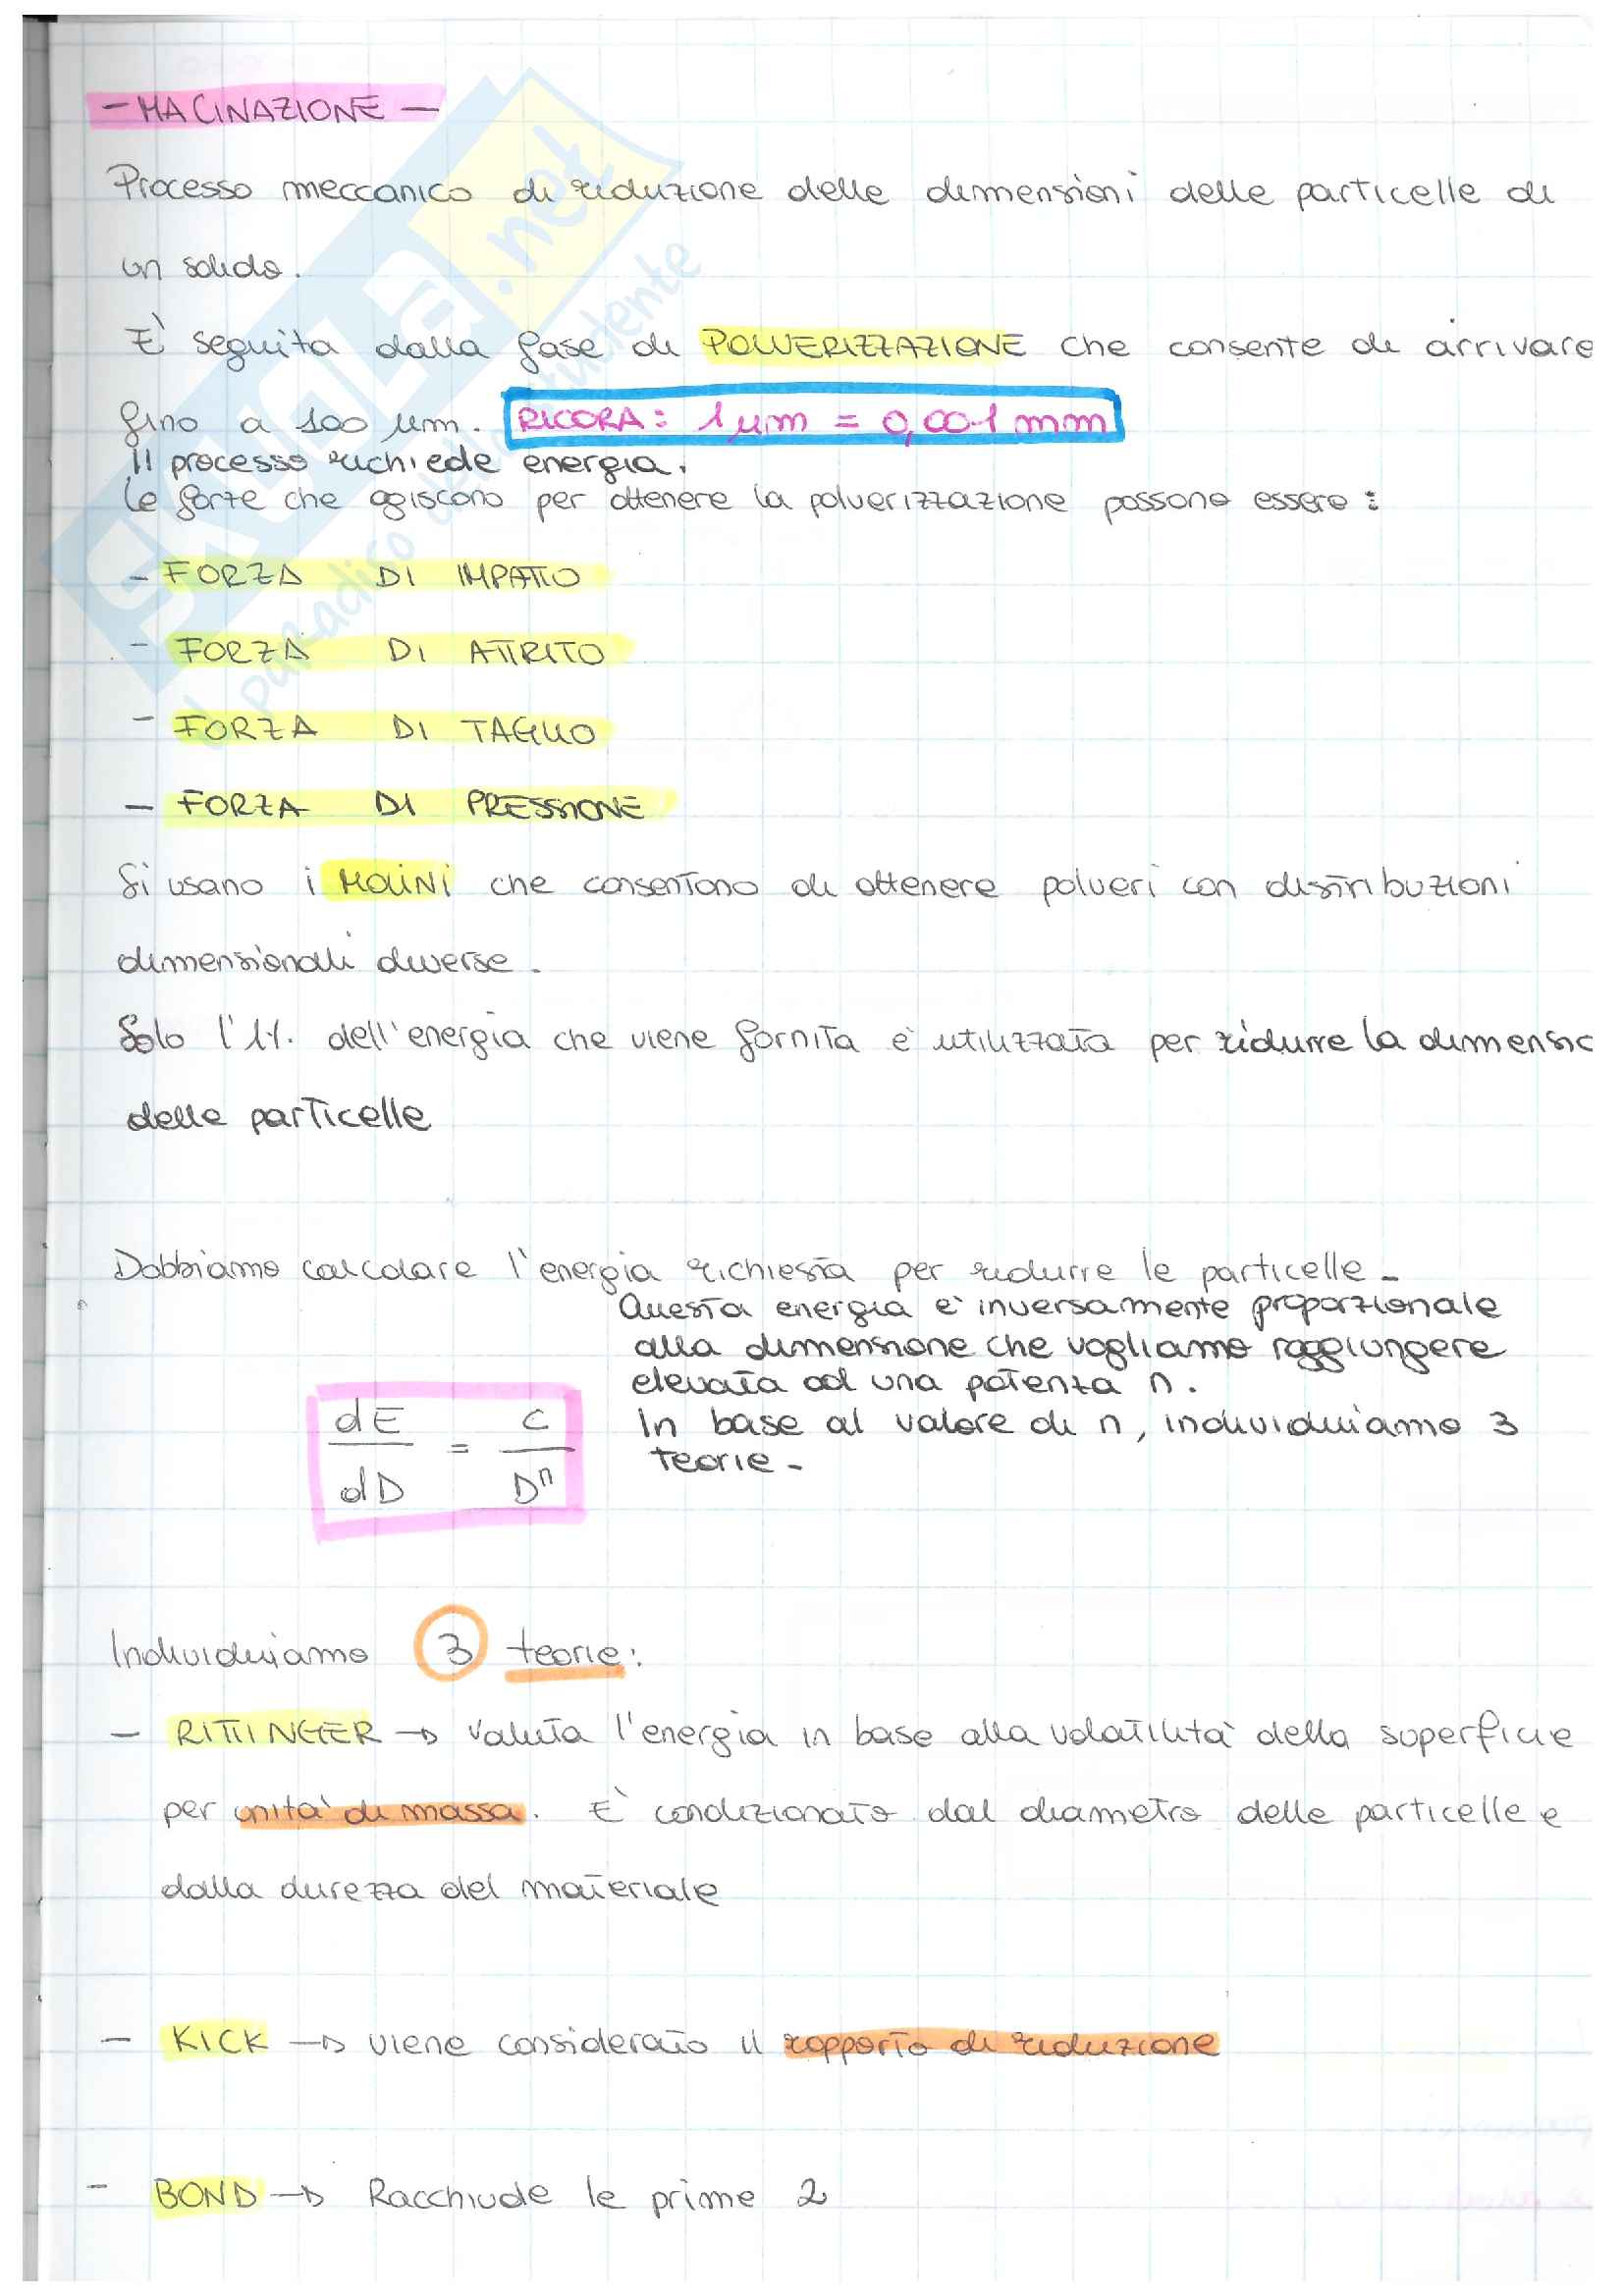 - MACINAZIONE -
Processo meccanico di riduzione delle dimensioni delle particelle di
un solido.
È seguita dalla fase di POLVERIZZAZIONE che consente di arrivare
fino a 100 μm. RICORA: 1 μm = 0,001 mm
Il processo richiede energia.
Le forze che agiscono per ottenere la polverizzazione possono essere:
- FORZA DI IMPATTO
- FORZA DI ATTRITO
- FORZA DI TAGLIO
- FORZA DI PRESSIONE
Si usano i MOLINI che consentono di ottenere polveri con distribuzioni
dimensionali diverse.
Solo l'1%. dell'energia che viene fornita è utilizzata per ridurre la dimensio
delle particelle
Dobbiamo calcolare l'energia richiesta per ridurre le particelle -
Questa energia è inversamente proporzionale
alla dimensione che vogliamo raggiungere
elevata ad una potenza n.
In base al valore di n, individuiamo 3
teorie -
dE/dD = C/Dⁿ
Individuiamo 3 teorie:
- RITTINGER → Valuta l'energia in base alla volatilità della superficie
per unità di massa. È condizionato dal diametro delle particelle e
dalla durezza del materiale
- KICK → viene considerato il rapporto di riduzione
- BOND → Racchiude le prime 2
SKUOLA.net
il paradiso dello studente